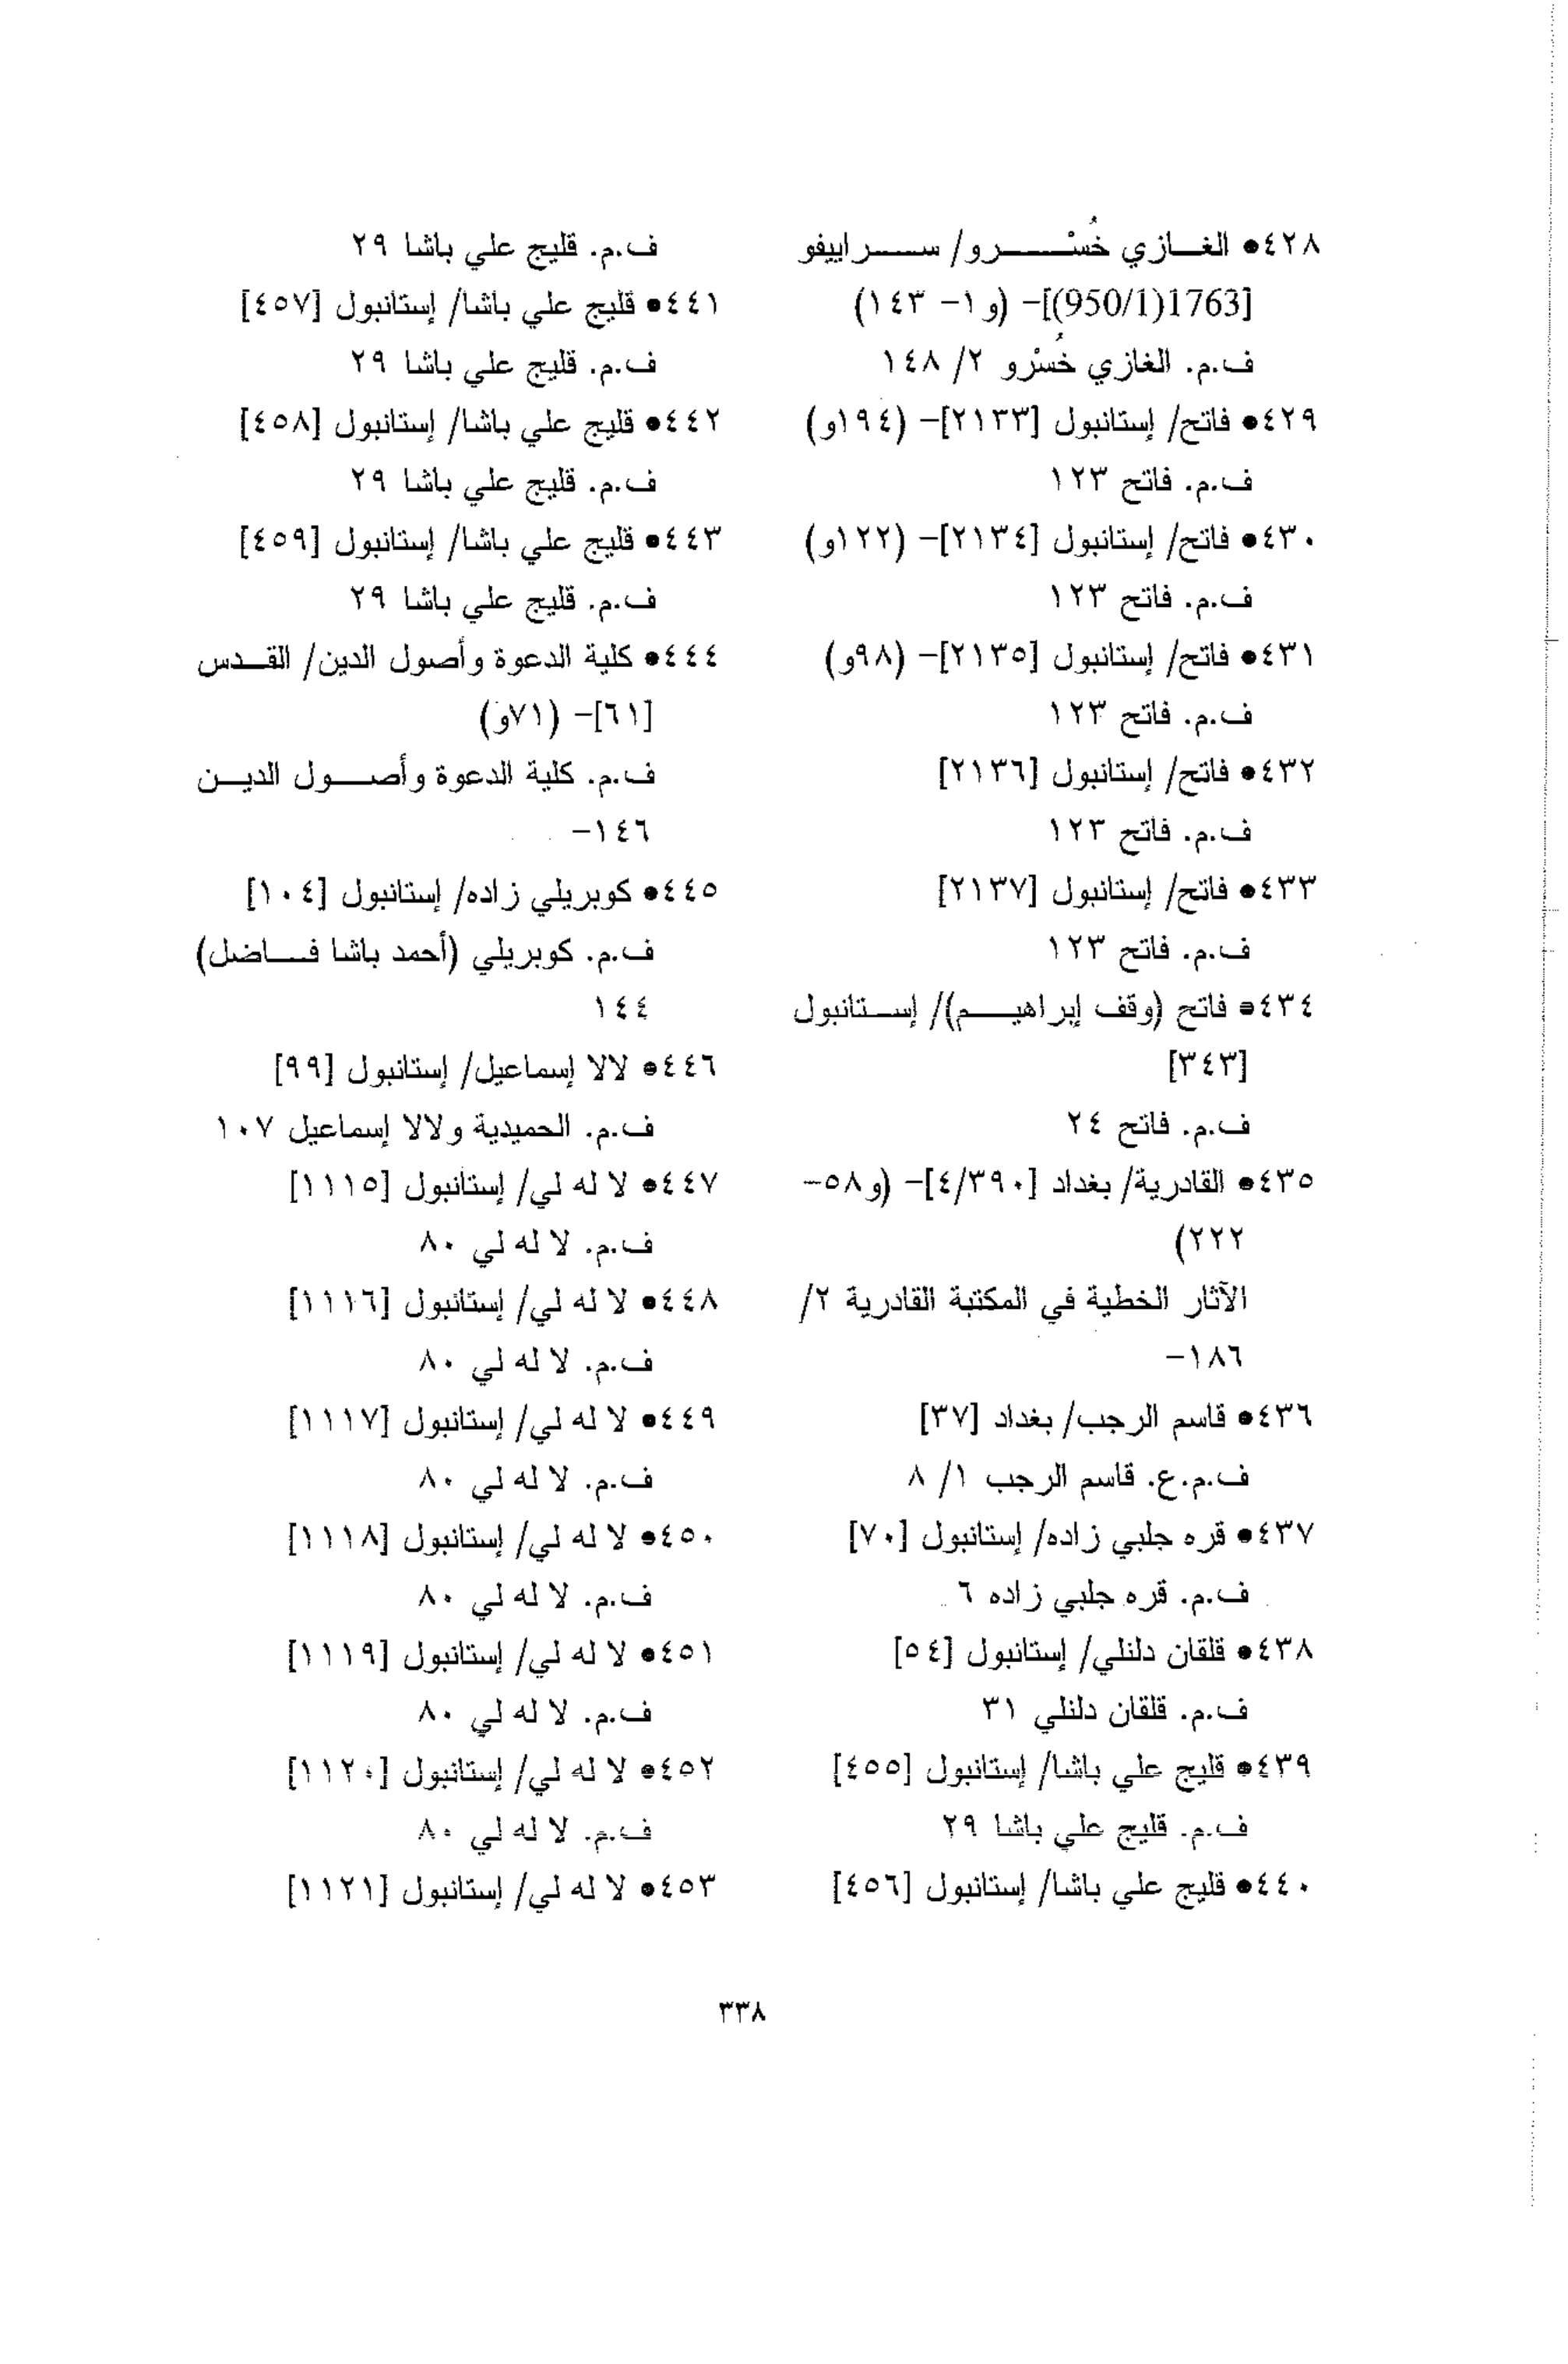 ٤٢٨• الغازي خُسْرو/ سراييفو
[950/1)1763)]- (و١- ١٤٣)
ف.م. الغازي خُسْرو ٢/ ١٤٨
٤٢٩• فاتح/ إستانبول [٢١٣٣]- (١٩٤و)
ف.م. فاتح ١٢٣
٤٣٠• فاتح/ إستانبول [٢١٣٤]- (١٢٢و)
ف.م. فاتح ١٢٣
٤٣١• فاتح/ إستانبول [٢١٣٥]- (٩٨و)
ف.م. فاتح ١٢٣
٤٣٢• فاتح/ إستانبول [٢١٣٦]
ف.م. فاتح ١٢٣
٤٣٣• فاتح/ إستانبول [٢١٣٧]
ف.م. فاتح ١٢٣
٤٣٤• فاتح (وقف إبراهيم)/ إستانبول
[٣٤٣]
ف.م. فاتح ٢٤
٤٣٥• القادرية/ بغداد [٤/٣٩٠]- (و٥٨-
٢٢٢)
الآثار الخطية في المكتبة القادرية ٢/
١٨٦-
٤٣٦• قاسم الرجب/ بغداد [٣٧]
ف.م.ع. قاسم الرجب ١/ ٨
٤٣٧• قره جلبي زاده/ إستانبول [٧٠]
ف.م. قره جلبي زاده ٦
٤٣٨• قلقان دلنلي/ إستانبول [٥٤]
ف.م. قلقان دلنلي ٣١
٤٣٩• قليج علي باشا/ إستانبول [٤٥٥]
ف.م. قليج علي باشا ٢٩
٤٤٠• قليج علي باشا/ إستانبول [٤٥٦]
ف.م. قليج علي باشا ٢٩
٤٤١• قليج علي باشا/ إستانبول [٤٥٧]
ف.م. قليج علي باشا ٢٩
٤٤٢• قليج علي باشا/ إستانبول [٤٥٨]
ف.م. قليج علي باشا ٢٩
٤٤٣• قليج علي باشا/ إستانبول [٤٥٩]
ف.م. قليج علي باشا ٢٩
٤٤٤• كلية الدعوة وأصول الدين/ القدس
[٦١]- (٧١و)
ف.م. كلية الدعوة وأصول الدين
١٤٦-
٤٤٥• كوبريلي زاده/ إستانبول [١٠٤]
ف.م. كوبريلي (أحمد باشا فاضل)
١٤٤
٤٤٦• لالا إسماعيل/ إستانبول [٩٩]
ف.م. الحميدية ولالا إسماعيل ١٠٧
٤٤٧• لا له لي/ إستانبول [١١١٥]
ف.م. لا له لي ٨٠
٤٤٨• لا له لي/ إستانبول [١١١٦]
ف.م. لا له لي ٨٠
٤٤٩• لا له لي/ إستانبول [١١١٧]
ف.م. لا له لي ٨٠
٤٥٠• لا له لي/ إستانبول [١١١٨]
ف.م. لا له لي ٨٠
٤٥١• لا له لي/ إستانبول [١١١٩]
ف.م. لا له لي ٨٠
٤٥٢• لا له لي/ إستانبول [١١٢٠]
ف.م. لا له لي ٨٠
٤٥٣• لا له لي/ إستانبول [١١٢١]
٣٣٨